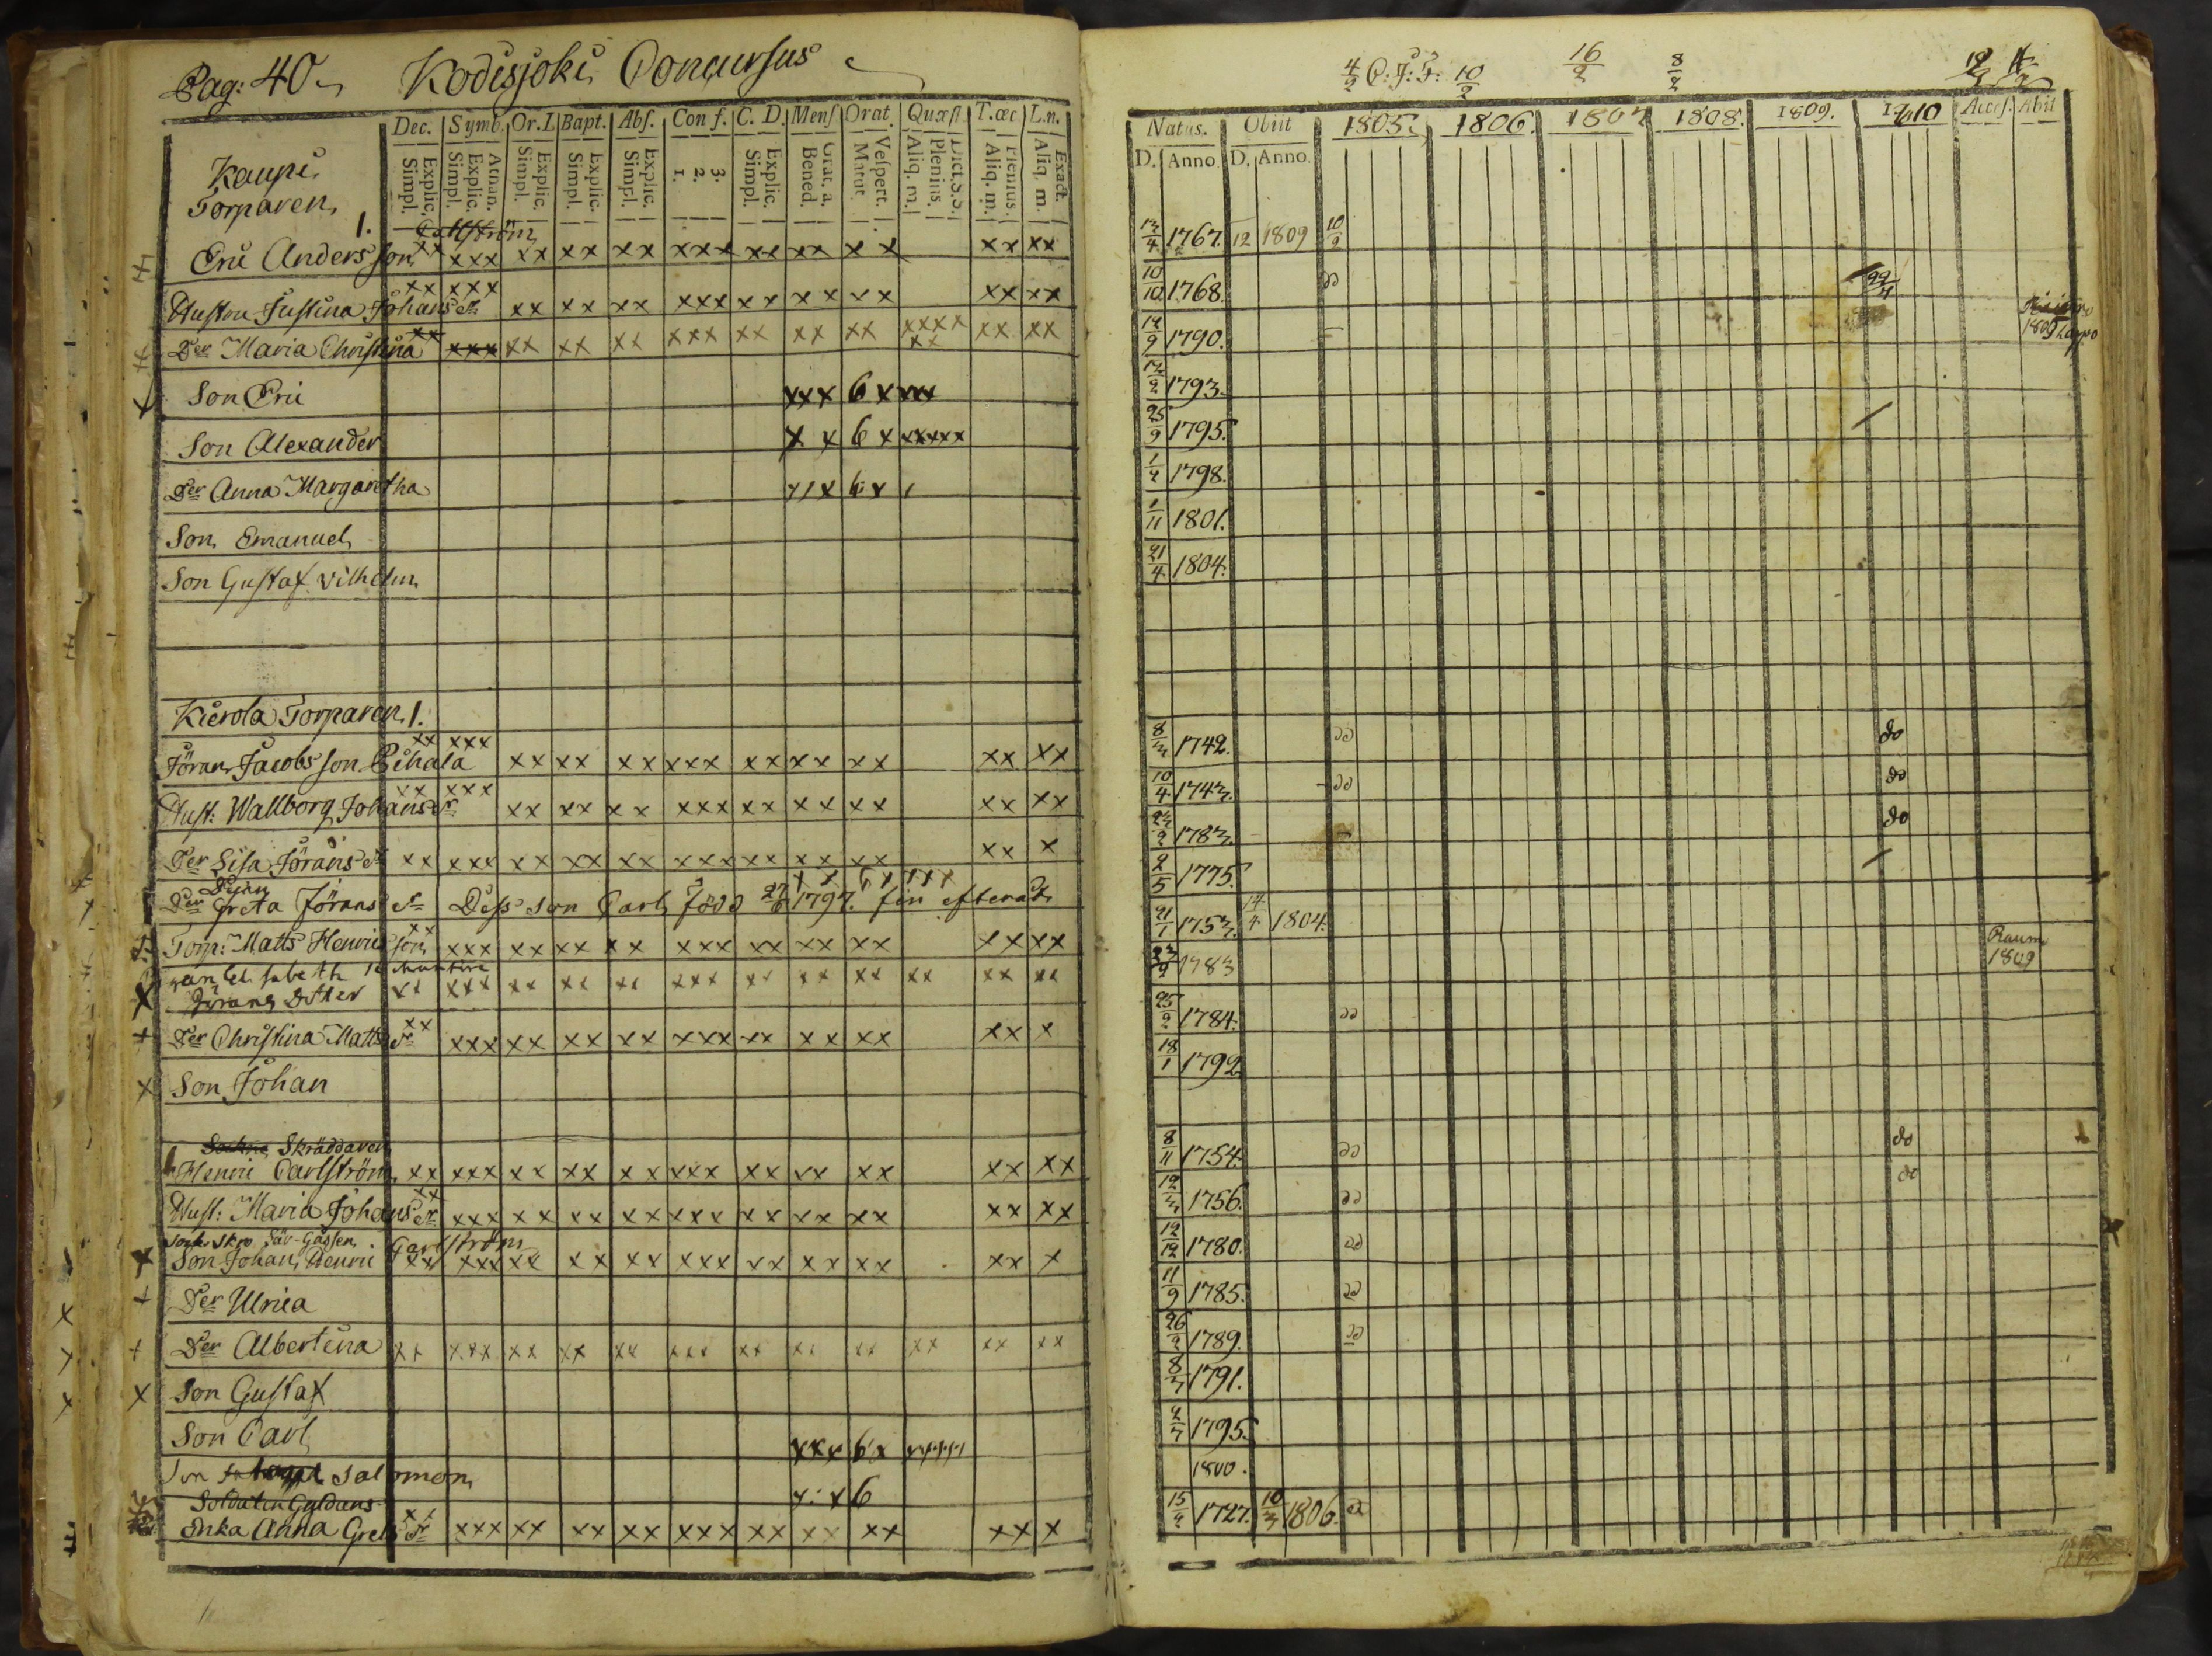 Pag: 40. Kodisjoki Concursus
Dec. Symb. Or.D. Bapt. Abs. Conf. C. D. Mens Orat. Quæst. T.œc. L.n.
Explic. Simpl. Athan. Explic. Simpl. Explic. Simpl. Explic. Simpl. Explic. Simpl. 3. 2. 1. Explic. Simpl. Grat. a. Bened. Vespert. Matut. Dict.S.S. Plenius. Aliq. m. Plenius. Aliq. m. Exact. Aliq. m.
Kaupi
Torparen
1.
Eric Andersson xx xxx xx xx xx xxx xx xx x x xx xx
Hustru Justina Johans dr xx xxx xx xx xx xxx xx xx xx xx xx
Der Maria Christina xx xxx xx xx xx xxx xx xx xx xxxx xx xx xx
Son Eric xxx 6 x xxx
Son Alexander x x 6 x xxxxx
Der Anna Margaretha
Son Emanuel
Son Gustaf Vilhelm
Kierola Torparen. 1.
Jöran Jacobsson Pihala xx xxx xx xx xx xxx xx xx xx xx xx
Hust: Wallborg Johans dr xx xxx xx xx xx xxx xx xx xx xx xx
Der Lisa Jörans dr xx xxx xx xx xx xxx xx xx xx xx x
Der Greta Jörans dr Dess son Carl född 27/6 1797. fin efteråt
Torp: Matts Henricsson xx xxx xx xx xx xxx xx xx xx xx xx
Jörans Dotter xx xxx xx xx xx xxx xx xx xx xx xx xx
Der Christina Matts dr xx xxx xx xx xx xxx xx xx xx xx x
Son Johan
Skräddaren
Henric Carlström xx xxx xx xx xx xxx xx xx xx xx xx
Hust: Maria Johans dr xx xxx xx xx xx xxx xx xx xx xx xx
Carlström
Son Johan Henric xx xxx xx xx xx xxx xx xx xx xx x
Der Ulrica
Der Albertina xx xxx xx xx xx xxx xx xx xx xx xx xx
Son Gustaf
Son Carl xxx 6 x
Son Salomon 6
Soldaten Gyldans
Enka Anna Grels dr xx xxx xx xx xx xxx xx xx xx xx x
4/2 10/2 16/2 8/2
Natus. Obiit 1805. 1806. 1807 1808. 1809. 1810 Access. Abiit
D. Anno D. Anno.
1767. 12 1809 10/2
10/10 1768.
1790. 1809 Lappo
1793.
25/9 1795.
1798.
1/11 1801.
21/4 1804.
1742. do
10/4 1743. do
1783. do
2/5 1775.
21/1 1753. 1804.
1783 Raum 1809
1784.
18/1 1792
8/11 1754. do
1756. do
12/12 1780.
11/9 1785.
1789.
1791.
1795.
1800.
1727. 1806.